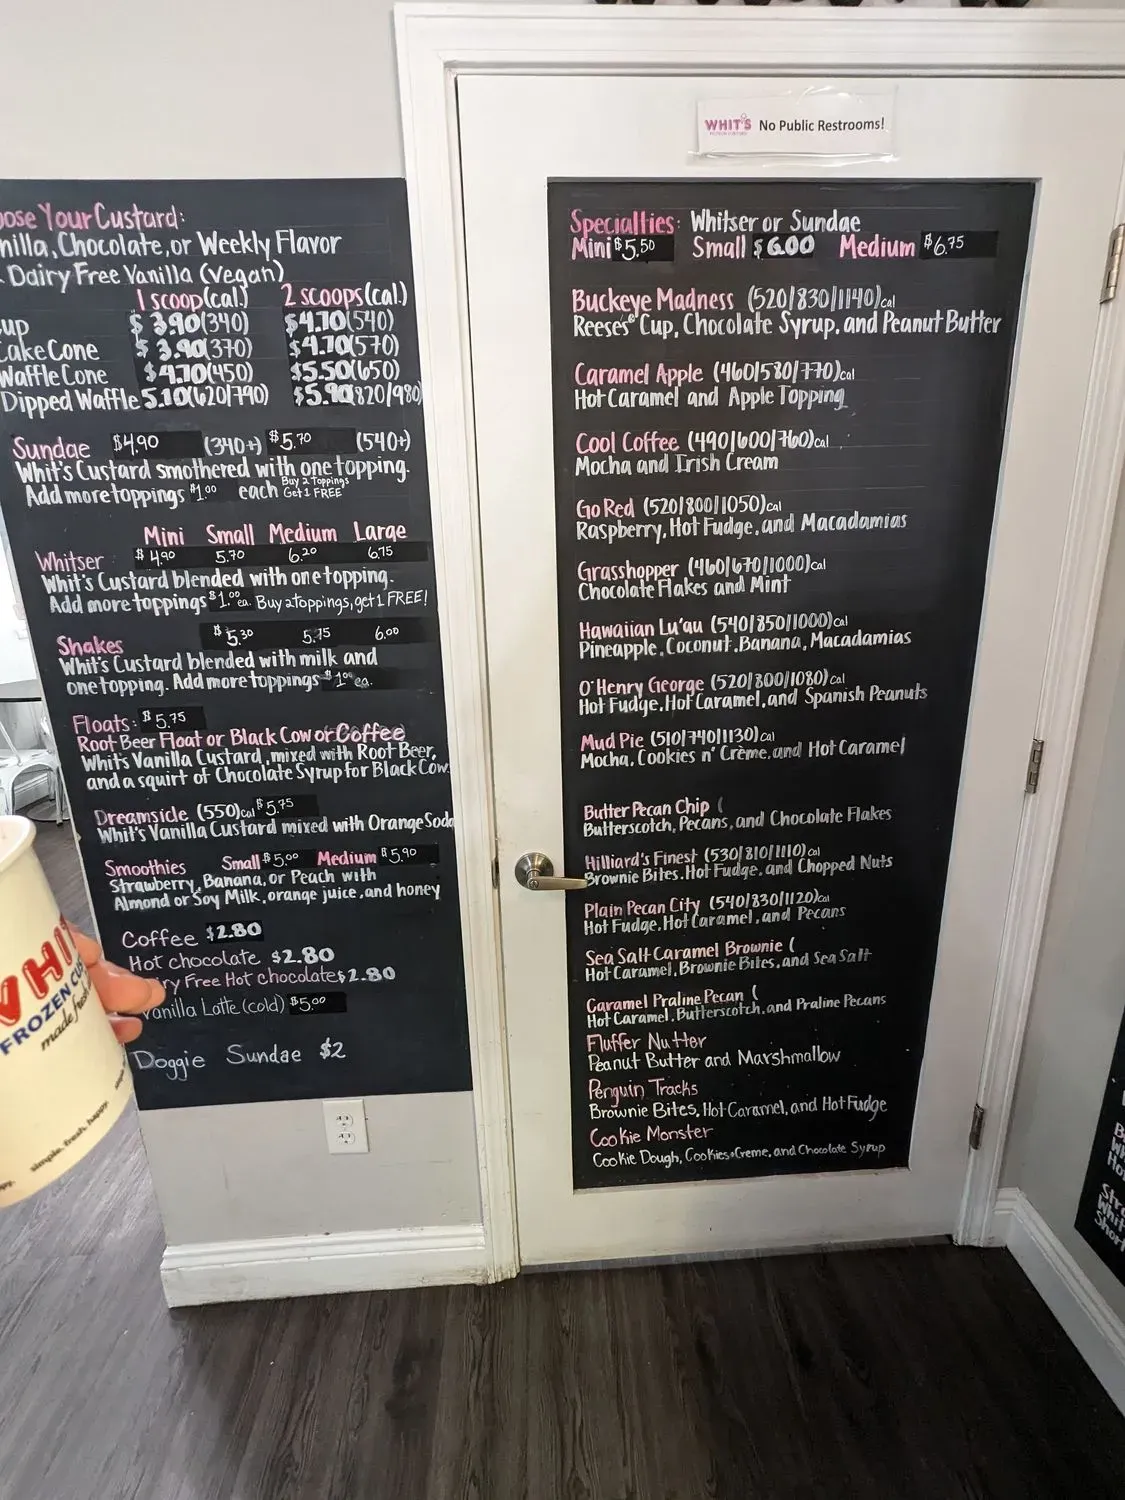 WHIT'S No Public Restrooms!
oose Your Custard:
nilla, Chocolate, or Weekly Flavor
Dairy Free Vanilla (Vegan)
1 scoop (cal.) 2 scoops (cal.)
up $3.90 (340) $4.70 (540)
Cake Cone $3.90 (370) $4.70 (570)
Waffle Cone $4.70 (450) $5.50 (650)
Dipped Waffle 5.10 (620/790) $5.90 (820/980)
Sundae $4.90 (340+) $5.70 (540+)
Whit's Custard smothered with one topping.
Add more toppings $1.00 each Buy 2 Toppings Get 1 FREE
Mini Small Medium Large
Whitser $4.90 5.70 6.20 6.75
Whit's Custard blended with one topping.
Add more toppings $1.00 ea. Buy 2 toppings, get 1 FREE!
Shakes $5.30 5.75 6.00
Whit's Custard blended with milk and
one topping. Add more toppings $1.00 ea.
Floats: $5.75
Root Beer Float or Black Cow or Coffee
Whit's Vanilla Custard, mixed with Root Beer,
and a squirt of Chocolate Syrup for Black Cow.
Dreamsicle (550)cal $5.75
Whit's Vanilla Custard mixed with Orange Soda
Smoothies Small $5.00 Medium $5.90
Strawberry, Banana, or Peach with
Almond or Soy Milk, orange juice, and honey
Coffee $2.80
Hot chocolate $2.80
ry Free Hot chocolate $2.80
Vanilla Latte (cold) $5.00
Doggie Sundae $2
Specialties: Whitser or Sundae
Mini $5.50 Small $6.00 Medium $6.75
Buckeye Madness (520/830/1140)cal
Reeses® Cup, Chocolate Syrup, and Peanut Butter
Caramel Apple (460/580/770)cal
Hot Caramel and Apple Topping
Cool Coffee (490/600/760)cal
Mocha and Irish Cream
Go Red (520/800/1050)cal
Raspberry, Hot Fudge, and Macadamias
Grasshopper (460/670/1000)cal
Chocolate Flakes and Mint
Hawaiian Lu'au (540/850/1000)cal
Pineapple, Coconut, Banana, Macadamias
O'Henry George (520/800/1080)cal
Hot Fudge, Hot Caramel, and Spanish Peanuts
Mud Pie (510/740/1130)cal
Mocha, Cookies n' Crème, and Hot Caramel
Butter Pecan Chip (
Butterscotch, Pecans, and Chocolate Flakes
Hilliard's Finest (530/810/1110)cal
Brownie Bites, Hot Fudge, and Chopped Nuts
Plain Pecan City (540/830/1120)cal
Hot Fudge, Hot Caramel, and Pecans
Sea Salt Caramel Brownie (
Hot Caramel, Brownie Bites, and Sea Salt
Caramel Praline Pecan (
Hot Caramel, Butterscotch, and Praline Pecans
Fluffer Nutter
Peanut Butter and Marshmallow
Penguin Tracks
Brownie Bites, Hot Caramel, and Hot Fudge
Cookie Monster
Cookie Dough, Cookies & Creme, and Chocolate Syrup
WHI
FROZEN CUS
made fresh
simple. fresh. happy.